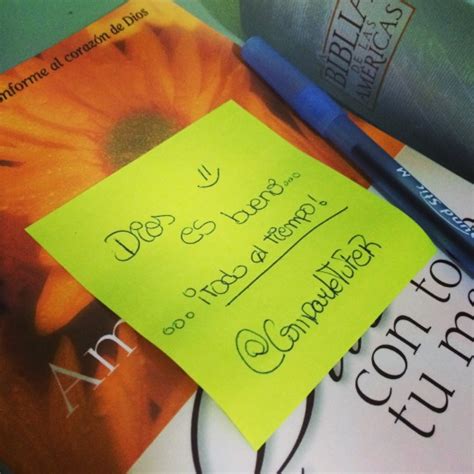 nforme al corazón de Dios
LA
BIBLIA
DE LAS
AMÉRICAS
Dios
es bueno...
...¡todo el tiempo!
Am
con to
tu m